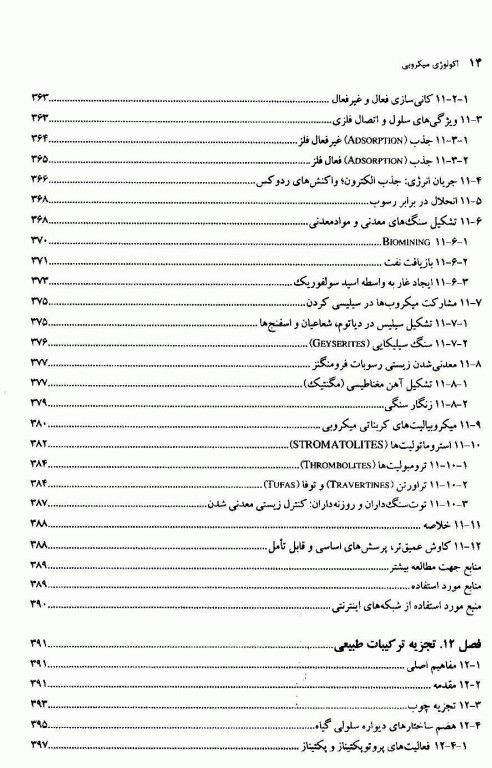 ۱۴ اکولوژی میکروبی
۱۱-۲-۱ کانی‌سازی فعال و غیرفعال ۳۶۳
۱۱-۳ ویژگی‌های سلول و اتصال فلزی ۳۶۳
۱۱-۳-۱ جذب (ADSORPTION) غیرفعال فلز ۳۶۴
۱۱-۳-۲ جذب (ADSORPTION) فعال فلز ۳۶۵
۱۱-۴ جریان انرژی: جذب الکترون؛ واکنش‌های ردوکس ۳۶۶
۱۱-۵ انحلال در برابر رسوب ۳۶۸
۱۱-۶ تشکیل سنگ‌های معدنی و موادمعدنی ۳۶۸
۱۱-۶-۱ BIOMINING ۳۷۰
۱۱-۶-۲ بازیافت نفت ۳۷۱
۱۱-۶-۳ ایجاد غار به واسطه اسید سولفوریک ۳۷۳
۱۱-۷ مشارکت میکروب‌ها در سیلیسی کردن ۳۷۵
۱۱-۷-۱ تشکیل سیلیس در دیاتوم، شعاعیان و اسفنج‌ها ۳۷۵
۱۱-۷-۲ سنگ سیلیکایی (GEYSERITES) ۳۷۶
۱۱-۸ معدنی‌شدن زیستی رسوبات فرومنگنز ۳۷۷
۱۱-۸-۱ تشکیل آهن مغناطیسی (مگنتیک) ۳۷۷
۱۱-۸-۲ زنگار سنگی ۳۷۹
۱۱-۹ میکروبیالیت‌های کربناتی میکروبی ۳۸۰
۱۱-۱۰ استروماتولیت‌ها (STROMATOLITES) ۳۸۲
۱۱-۱۰-۱ ترومبولیت‌ها (THROMBOLITES) ۳۸۴
۱۱-۱۰-۲ تراورتن (TRAVERTINES) و توفا (TUFAS) ۳۸۴
۱۱-۱۰-۳ توت‌سنگ‌داران و روزنه‌داران: کنترل زیستی معدنی شدن ۳۸۷
۱۱-۱۱ خلاصه ۳۸۸
۱۱-۱۲ کاوش عمیق‌تر، پرسش‌های اساسی و قابل تأمل ۳۸۸
منابع جهت مطالعه بیشتر ۳۸۹
منابع مورد استفاده ۳۸۹
منبع مورد استفاده از شبکه‌های اینترنتی ۳۹۰
فصل ۱۲. تجزیه ترکیبات طبیعی ۳۹۱
۱۲-۱ مفاهیم اصلی ۳۹۱
۱۲-۲ مقدمه ۳۹۱
۱۲-۳ تجزیه چوب ۳۹۳
۱۲-۴ هضم ساختارهای دیواره سلولی گیاه ۳۹۵
۱۲-۴-۱ فعالیت‌های پروتوپکتیناز و پکتیناز ۳۹۷